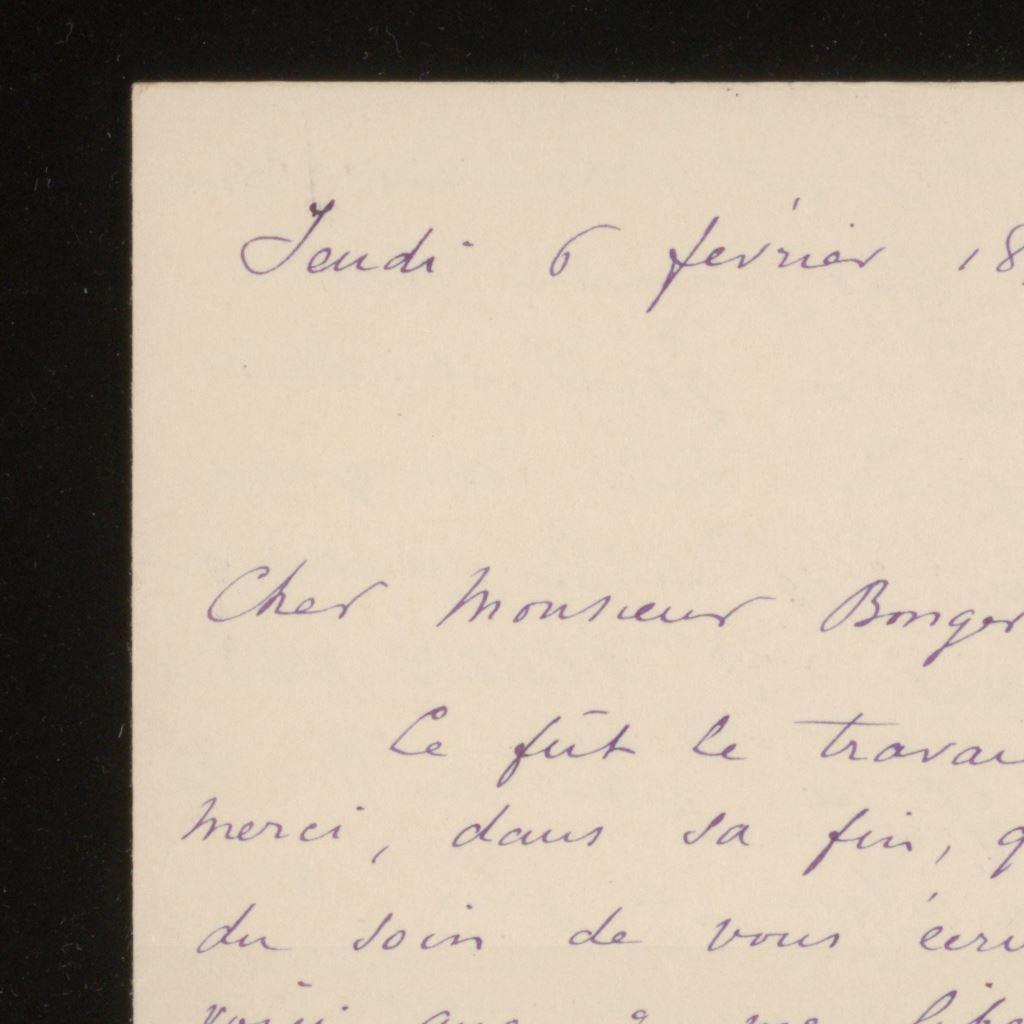 Jeudi 6 février 18
Cher Monsieur Bonger
Ce fût le travai
merci, dans sa fin, q
du soin de vous écri
voici que je me libè